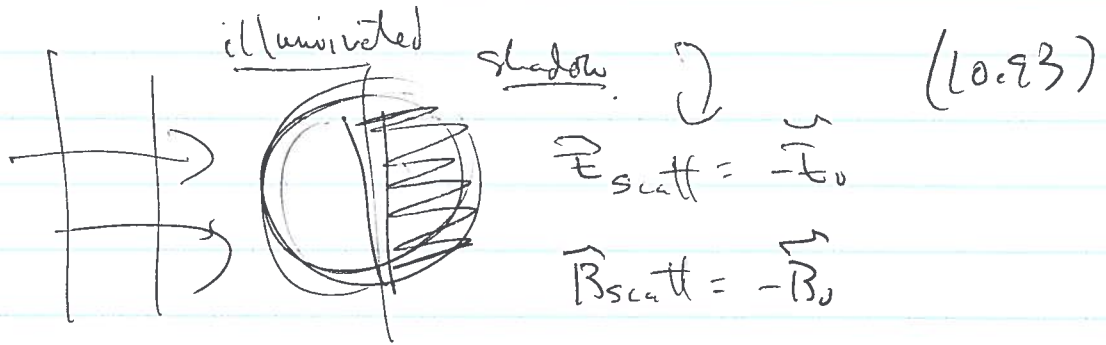 illuminated shadow. (10.93)
E⃗scatt = -E⃗0
B⃗scatt = -B⃗0